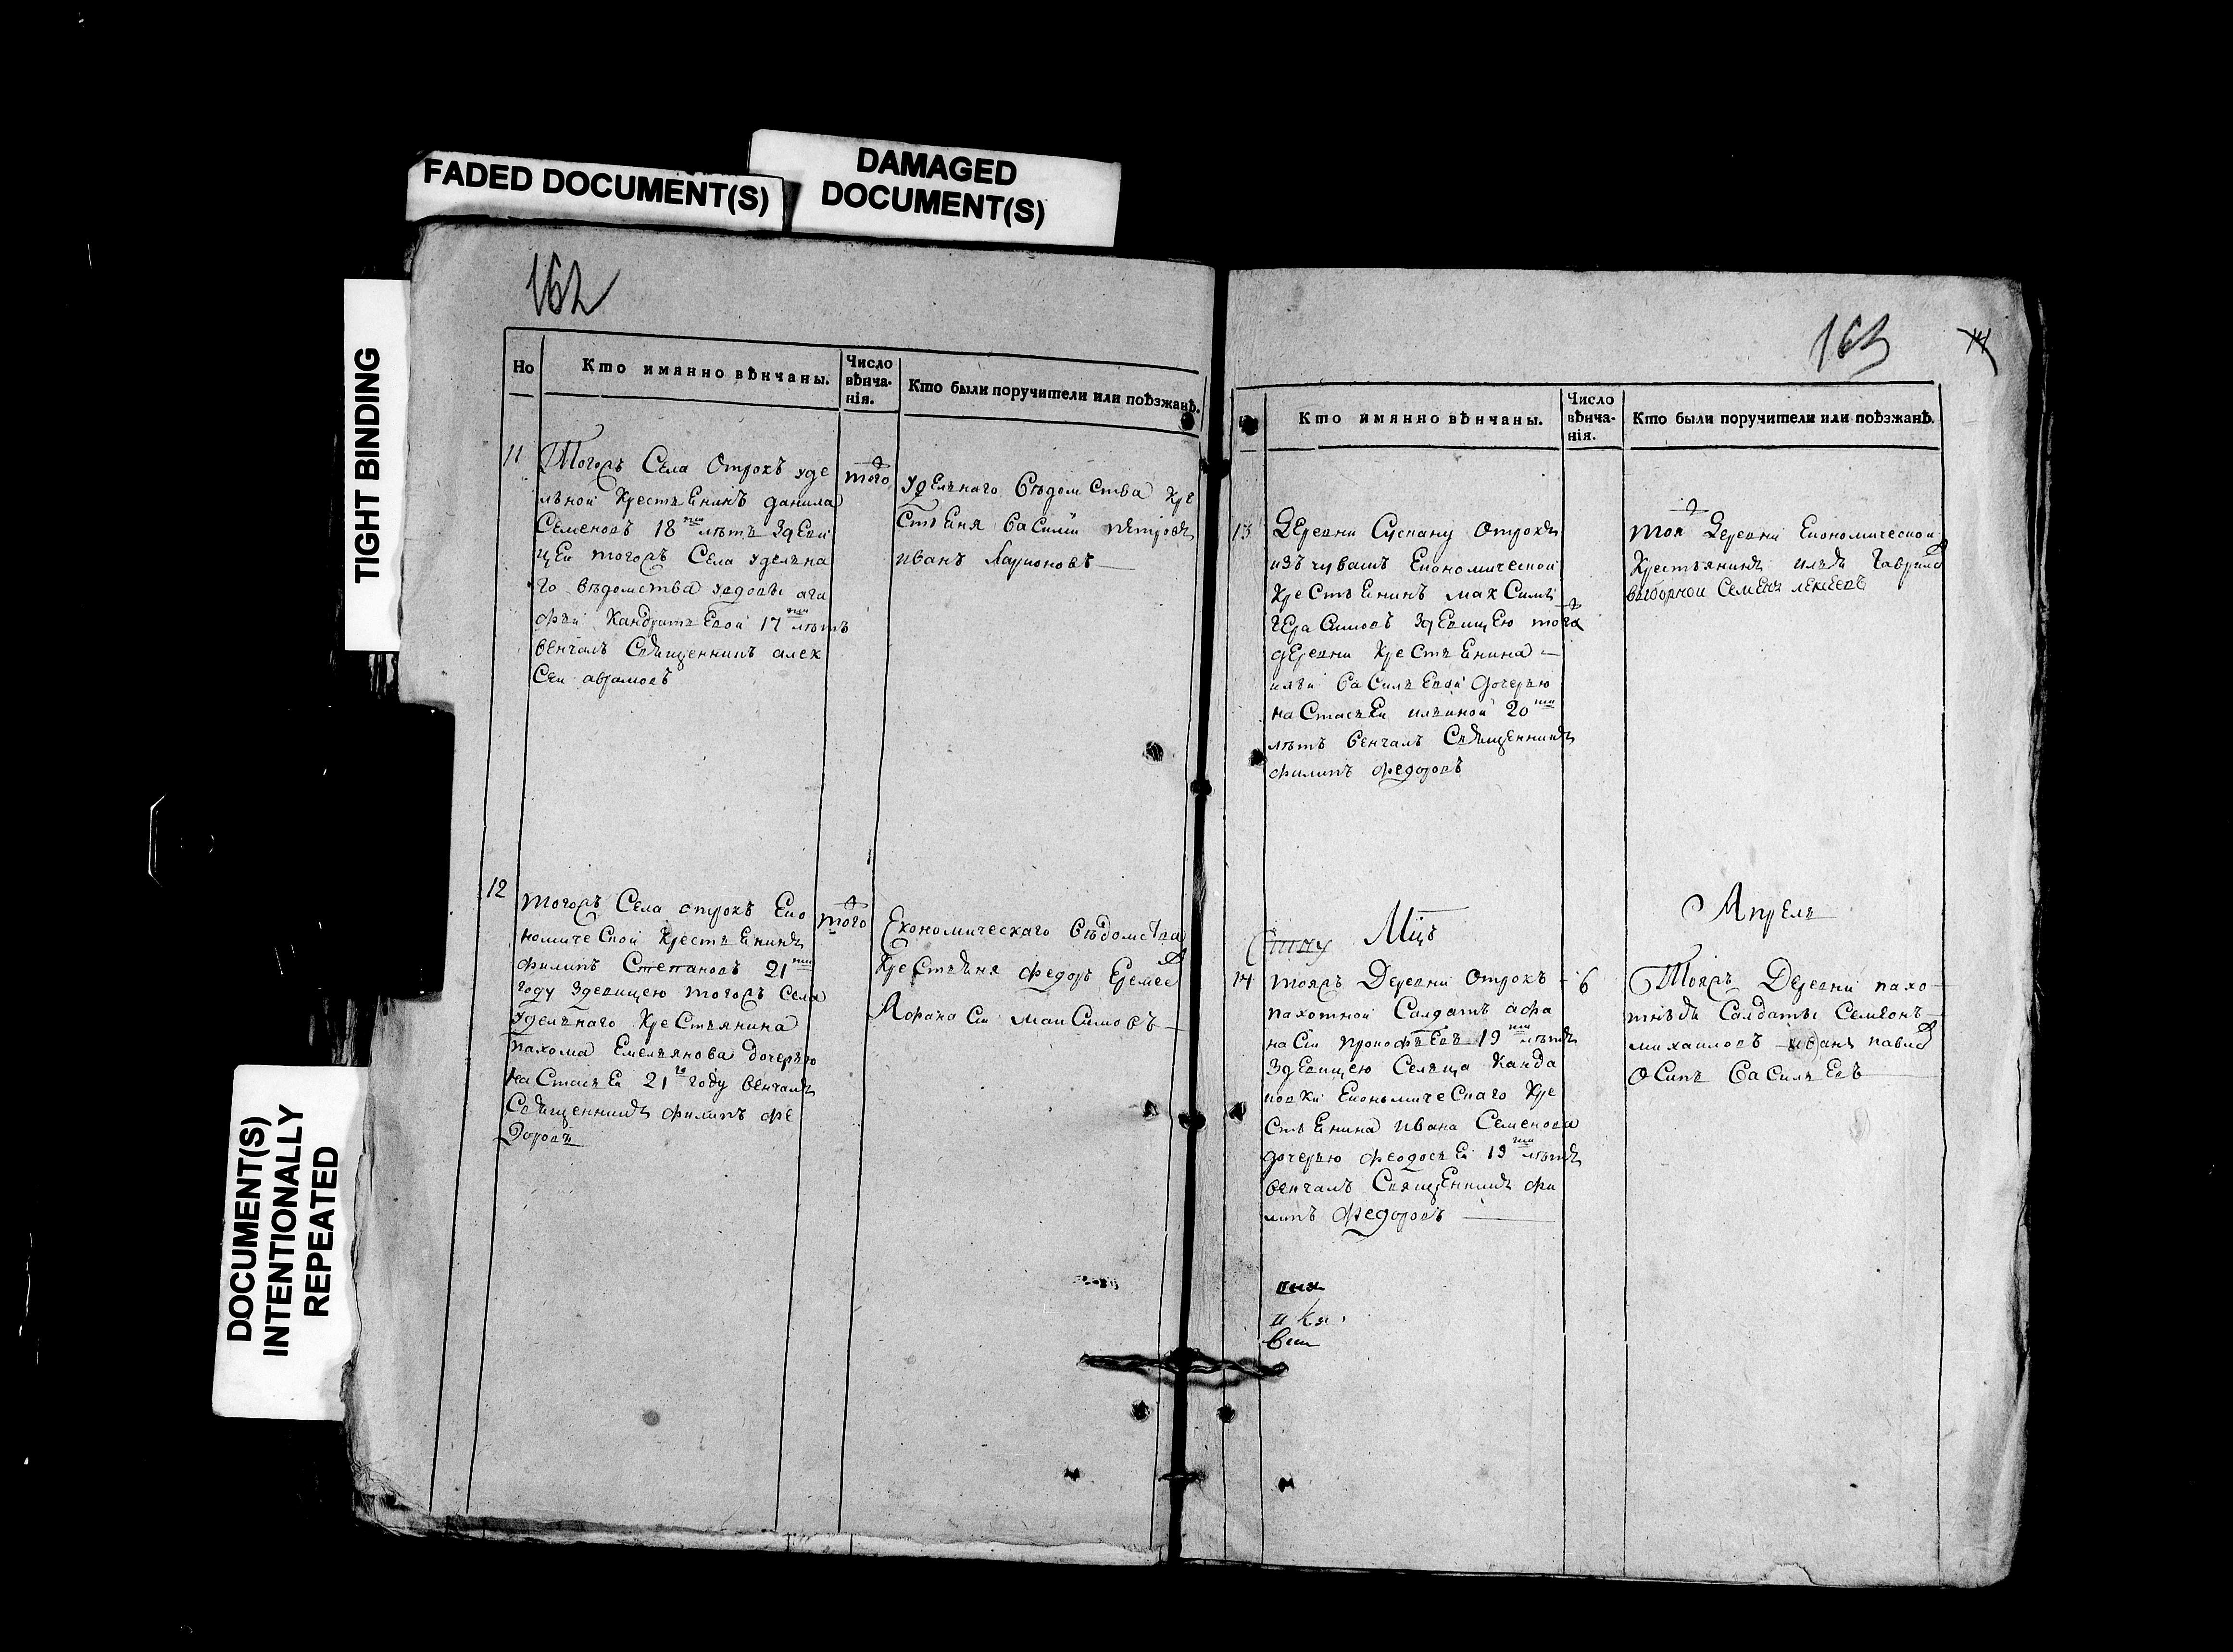 FADED DOCUMENT(S)
DAMAGED
DOCUMENT(S)
TIGHT BINDING
DOCUMENT(S)
INTENTIONALLY
REPEATED
162
Но
Кто имянно вѣнчаны.
Число
вѣнча-
нія.
Кто были поручители или поѣзжанѣ.
11
Тогожъ Села Отрокъ уде
лъной Крестъенинъ данила
Семеновъ 18 лѣтъ здеви
цеи тогожъ Села уделна
го вѣдомства
фѣи Кандратъевой 17 лѣтъ
венчалъ Священникъ алек
сеи авромовъ
того
уделнаго вѣдомства кре
стъеня василии петровъ
иванъ Ларионовъ
12
тогожъ Села отрокъ Еко
номической Крестъенинъ
филипъ Степановъ 21
году здевицею тогожъ Села
уделнаго Крестъянина
пахома Емелъянова дочерью
настасъеи 21 году венчалъ
Священникъ филипъ фе
доровъ
того
Економическаго вѣдомства
крестъяня федоръ Еремее
Афонасеи максимовъ
163
Кто имянно вѣнчаны.
Число
вѣнча-
нія.
Кто были поручители или поѣзжанѣ.
13
Деревни отрокъ
изъ чувашъ Економической
крестъенинъ максимъ
герасимовъ здевицею тоя
деревни крестъенина
илъи василъевой дочерью
настасъеи илъиной 20
лѣтъ венчалъ Священникъ
филипъ федоровъ
тоя Деревни Економической
крестъянинъ илъя гаврила
выборной Семенъ
Мцъ
Апрель
14
тояжъ Деревни отрокъ
пахотной Салдатъ афа
насеи прокофъевъ 19 лѣтъ
здевицею Селъца канда
Економическаго кре
стъенина ивана Семенова
дочерью феодосъеи 19 лѣтъ
венчалъ Священникъ фи
липъ федоровъ
6
Тояжъ Деревни пахо
тнъя Салдаты Семионъ
михаиловъ иванъ павло
осипъ василъевъ